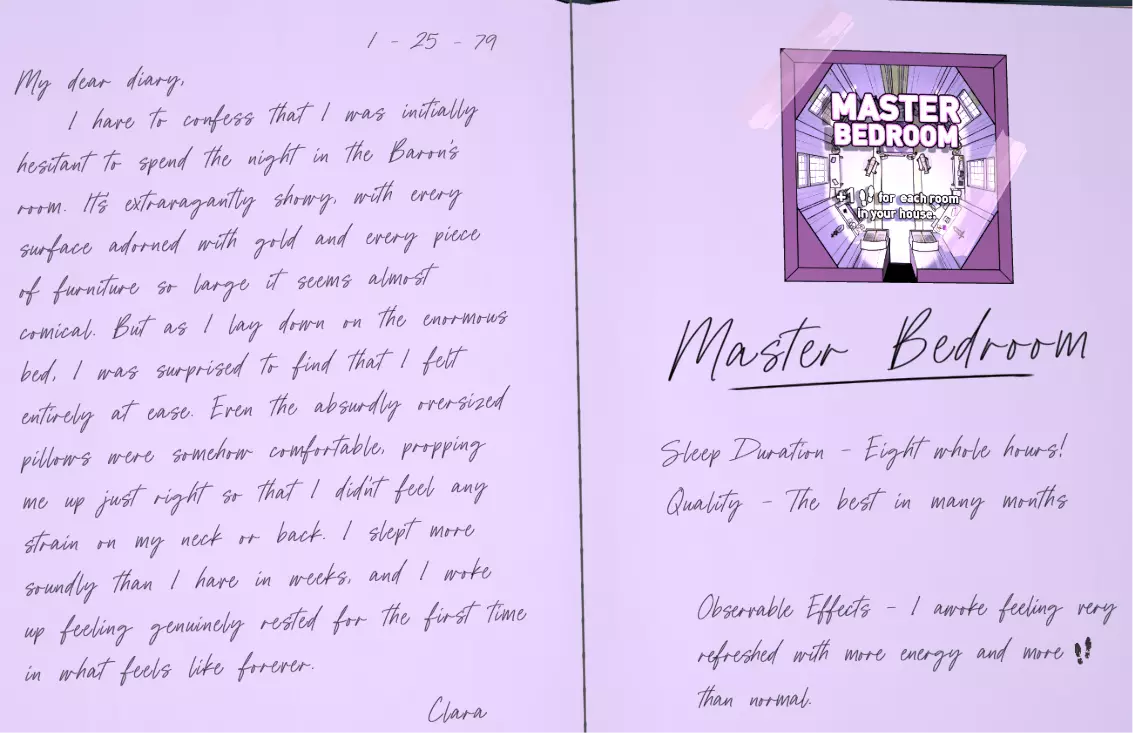 1 - 25 - 79
My dear diary,
I have to confess that I was initially
hesitant to spend the night in the Baron's
room. It's extravagantly showy, with every
surface adorned with gold and every piece
of furniture so large it seems almost
comical. But as I lay down on the enormous
bed, I was surprised to find that I felt
entirely at ease. Even the absurdly oversized
pillows were somehow comfortable, propping
me up just right so that I didn't feel any
strain on my neck or back. I slept more
soundly than I have in weeks, and I woke
up feeling genuinely rested for the first time
in what feels like forever.
Clara
MASTER
BEDROOM
+1 for each room
in your house.
Master Bedroom
Sleep Duration - Eight whole hours!
Quality - The best in many months
Observable Effects - I awoke feeling very
refreshed with more energy and more
than normal.